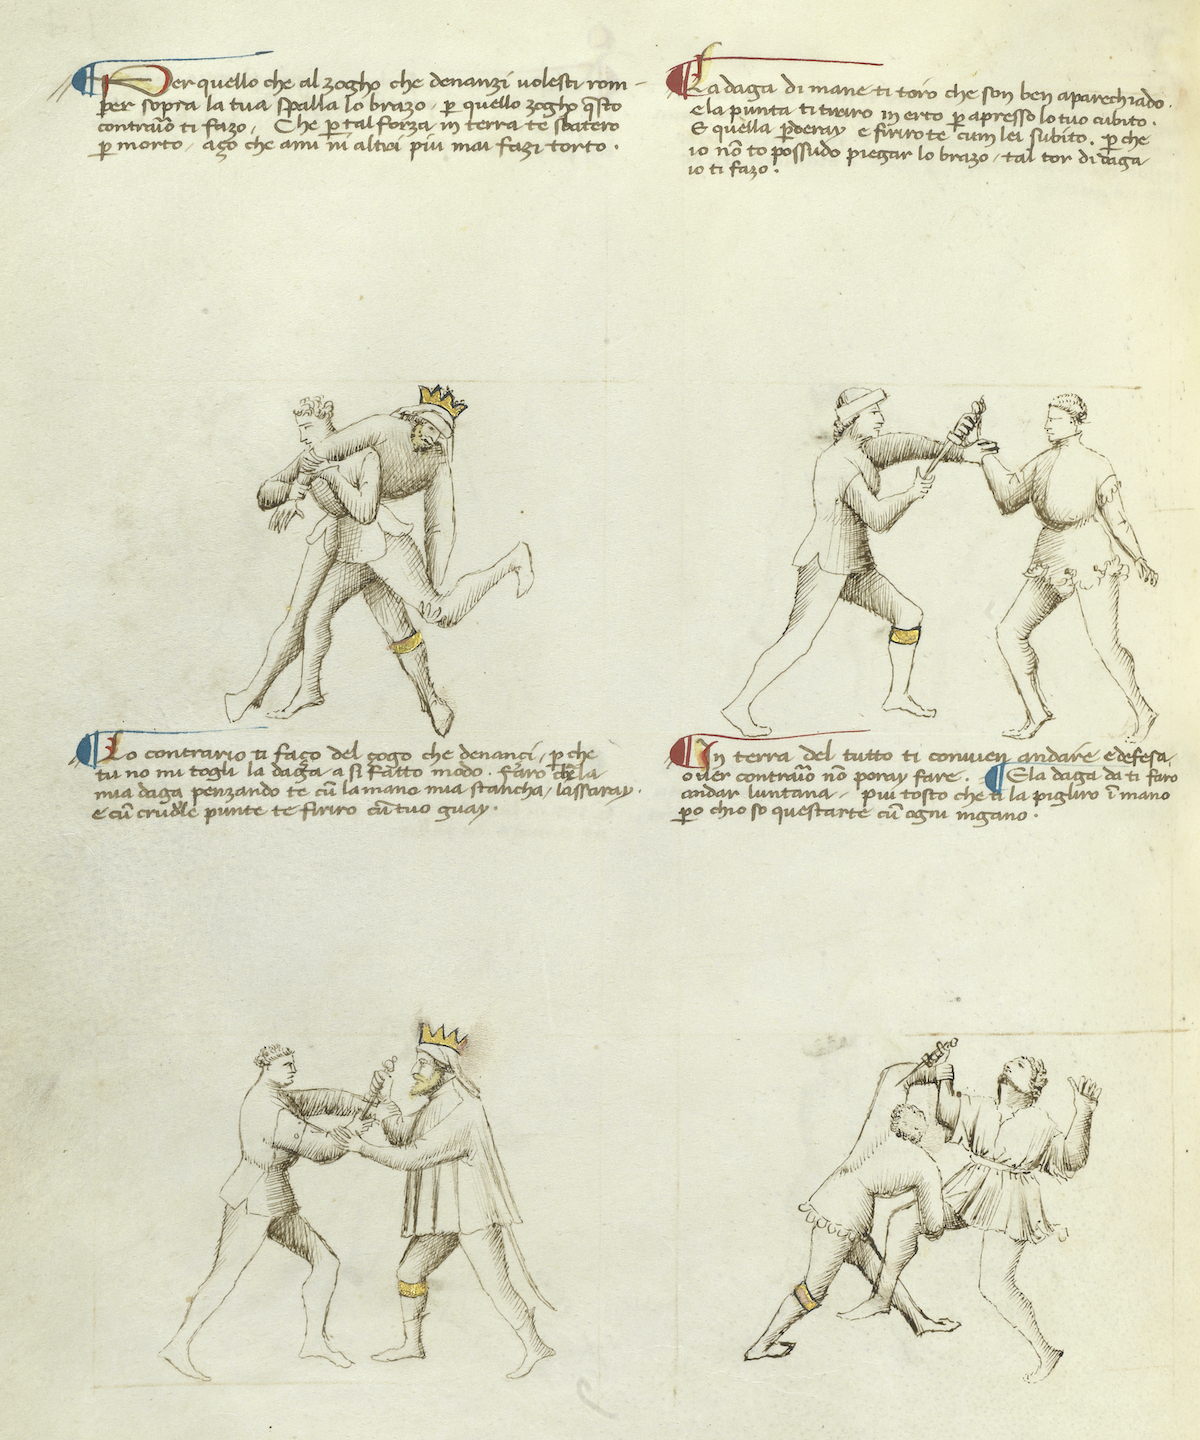 Per quello che al zogho che denanzi volesti rom-
per sopra la tua spalla lo brazo, p̱ quello zogho q̃sto
contraũo ti fazo, Che p̱ tal forza in terra te sbatero
p̱ morto, aço che ami ni altri piu mai fazi torto.
La daga di mane ti toro che son ben aparechiado.
e la punta ti tiriro in erto p̱ apresso lo tuo cubito.
E quella p̱deray e firirote cum lei subito. p̱ che
io nõ to possudo piegar lo brazo, tal tor di daga
io ti fazo.
Lo contrario ti faço del çogo che denanci, p̱ che
tu no mi togli la daga a si fatto modo. faro che la
mia daga penzando te cũ la mano mia stancha, lassaray.
e cũ crudele punte te firiro cũ tuo guay.
In terra del tutto ti convien andare e defesa,
over contraũo nõ poray fare. E la daga da ti faro
andar luntana, piu tosto che ti la pigliro ĩ mano
p̱o chio so quest arte cũ ogni ingano.